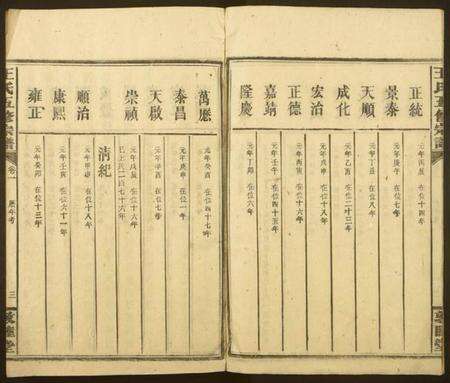 正統 元年丙辰 在位十四年
景泰 元年庚午 在位七年
天順 元年丁丑 在位八年
成化 元年乙酉 在位二十三年
宏治 元年戊申 在位十八年
正德 元年丙寅 在位十六年
嘉靖 元年壬午 在位四十五年
隆慶 元年丁卯 在位六年
萬歷 元年癸酉 在位四十七年
泰昌 元年庚申 在位一年
天啟 元年辛酉 在位七年
崇禎 元年戊辰 在位十六年
已上共二百七十六年
清紀
順治 元年甲申 在位十八年
康熙 元年壬寅 在位六十一年
雍正 元年癸卯 在位十三年
王氏五修宗譜
卷一
歷年考
三
敦睦堂
王氏五修宗譜
敦睦堂